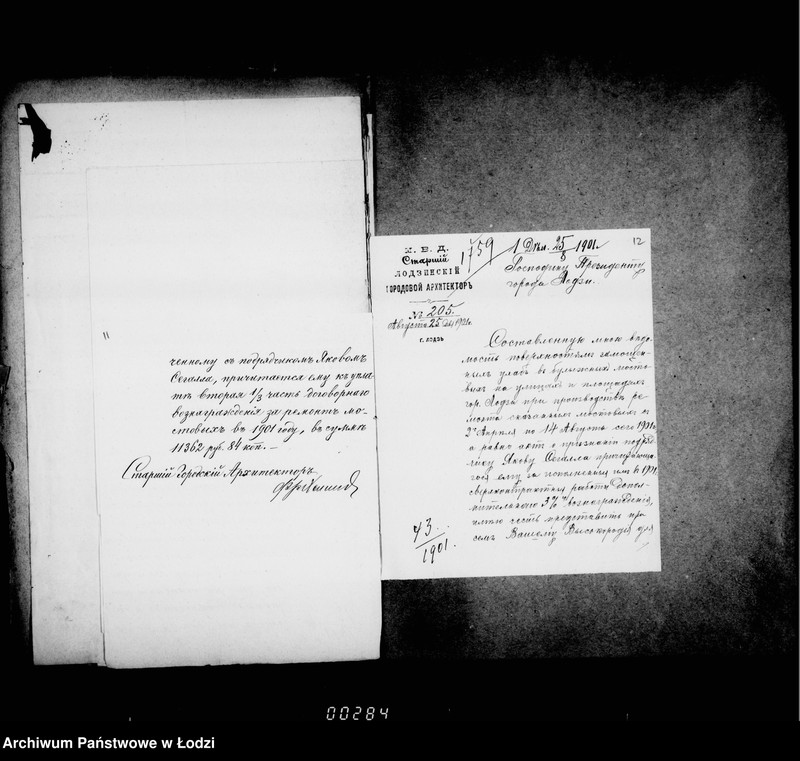 "
ченному съ подрядчикомъ Яковомъ
Сегалъ, причитается ему къ упла-
тѣ вторая 1/3 часть договорнаго
вознагражденія за ремонтъ мо-
стовыхъ въ 1901 году, въ суммѣ
11362 руб. 84 коп. —
Старшій Городскій Архитекторъ
М. В. Д.
Старшій
ЛОДЗИНСКІЙ
ГОРОДОВОЙ АРХИТЕКТОРЪ
№ 205.
Августа 25 дня 1901 г.
г. Лодзь
1759
1 Дѣл. 25/8 1901 г.
12
Господину Президенту
города Лодзи.
Составленную мною вѣдо-
мость поверхностямъ замощен-
ныхъ улицъ въ булыжныхъ мосто-
выхъ на улицахъ и площадяхъ
гор. Лодзи при производствѣ ре-
монта сказанныхъ мостовыхъ съ
2 Апрѣля по 14 Августа сего 1901 г.
а равно актъ о признаніи подряд-
чику Якову Сегалъ причитающа-
гося ему за исполненныя имъ въ 1901 г.
сверхконтрактныя работы допол-
нительнаго 3% вознагражденія,
имѣю честь представить при
семъ Вашему Высокородію для
43/1901.
00284
Archiwum Państwowe w Łodzi